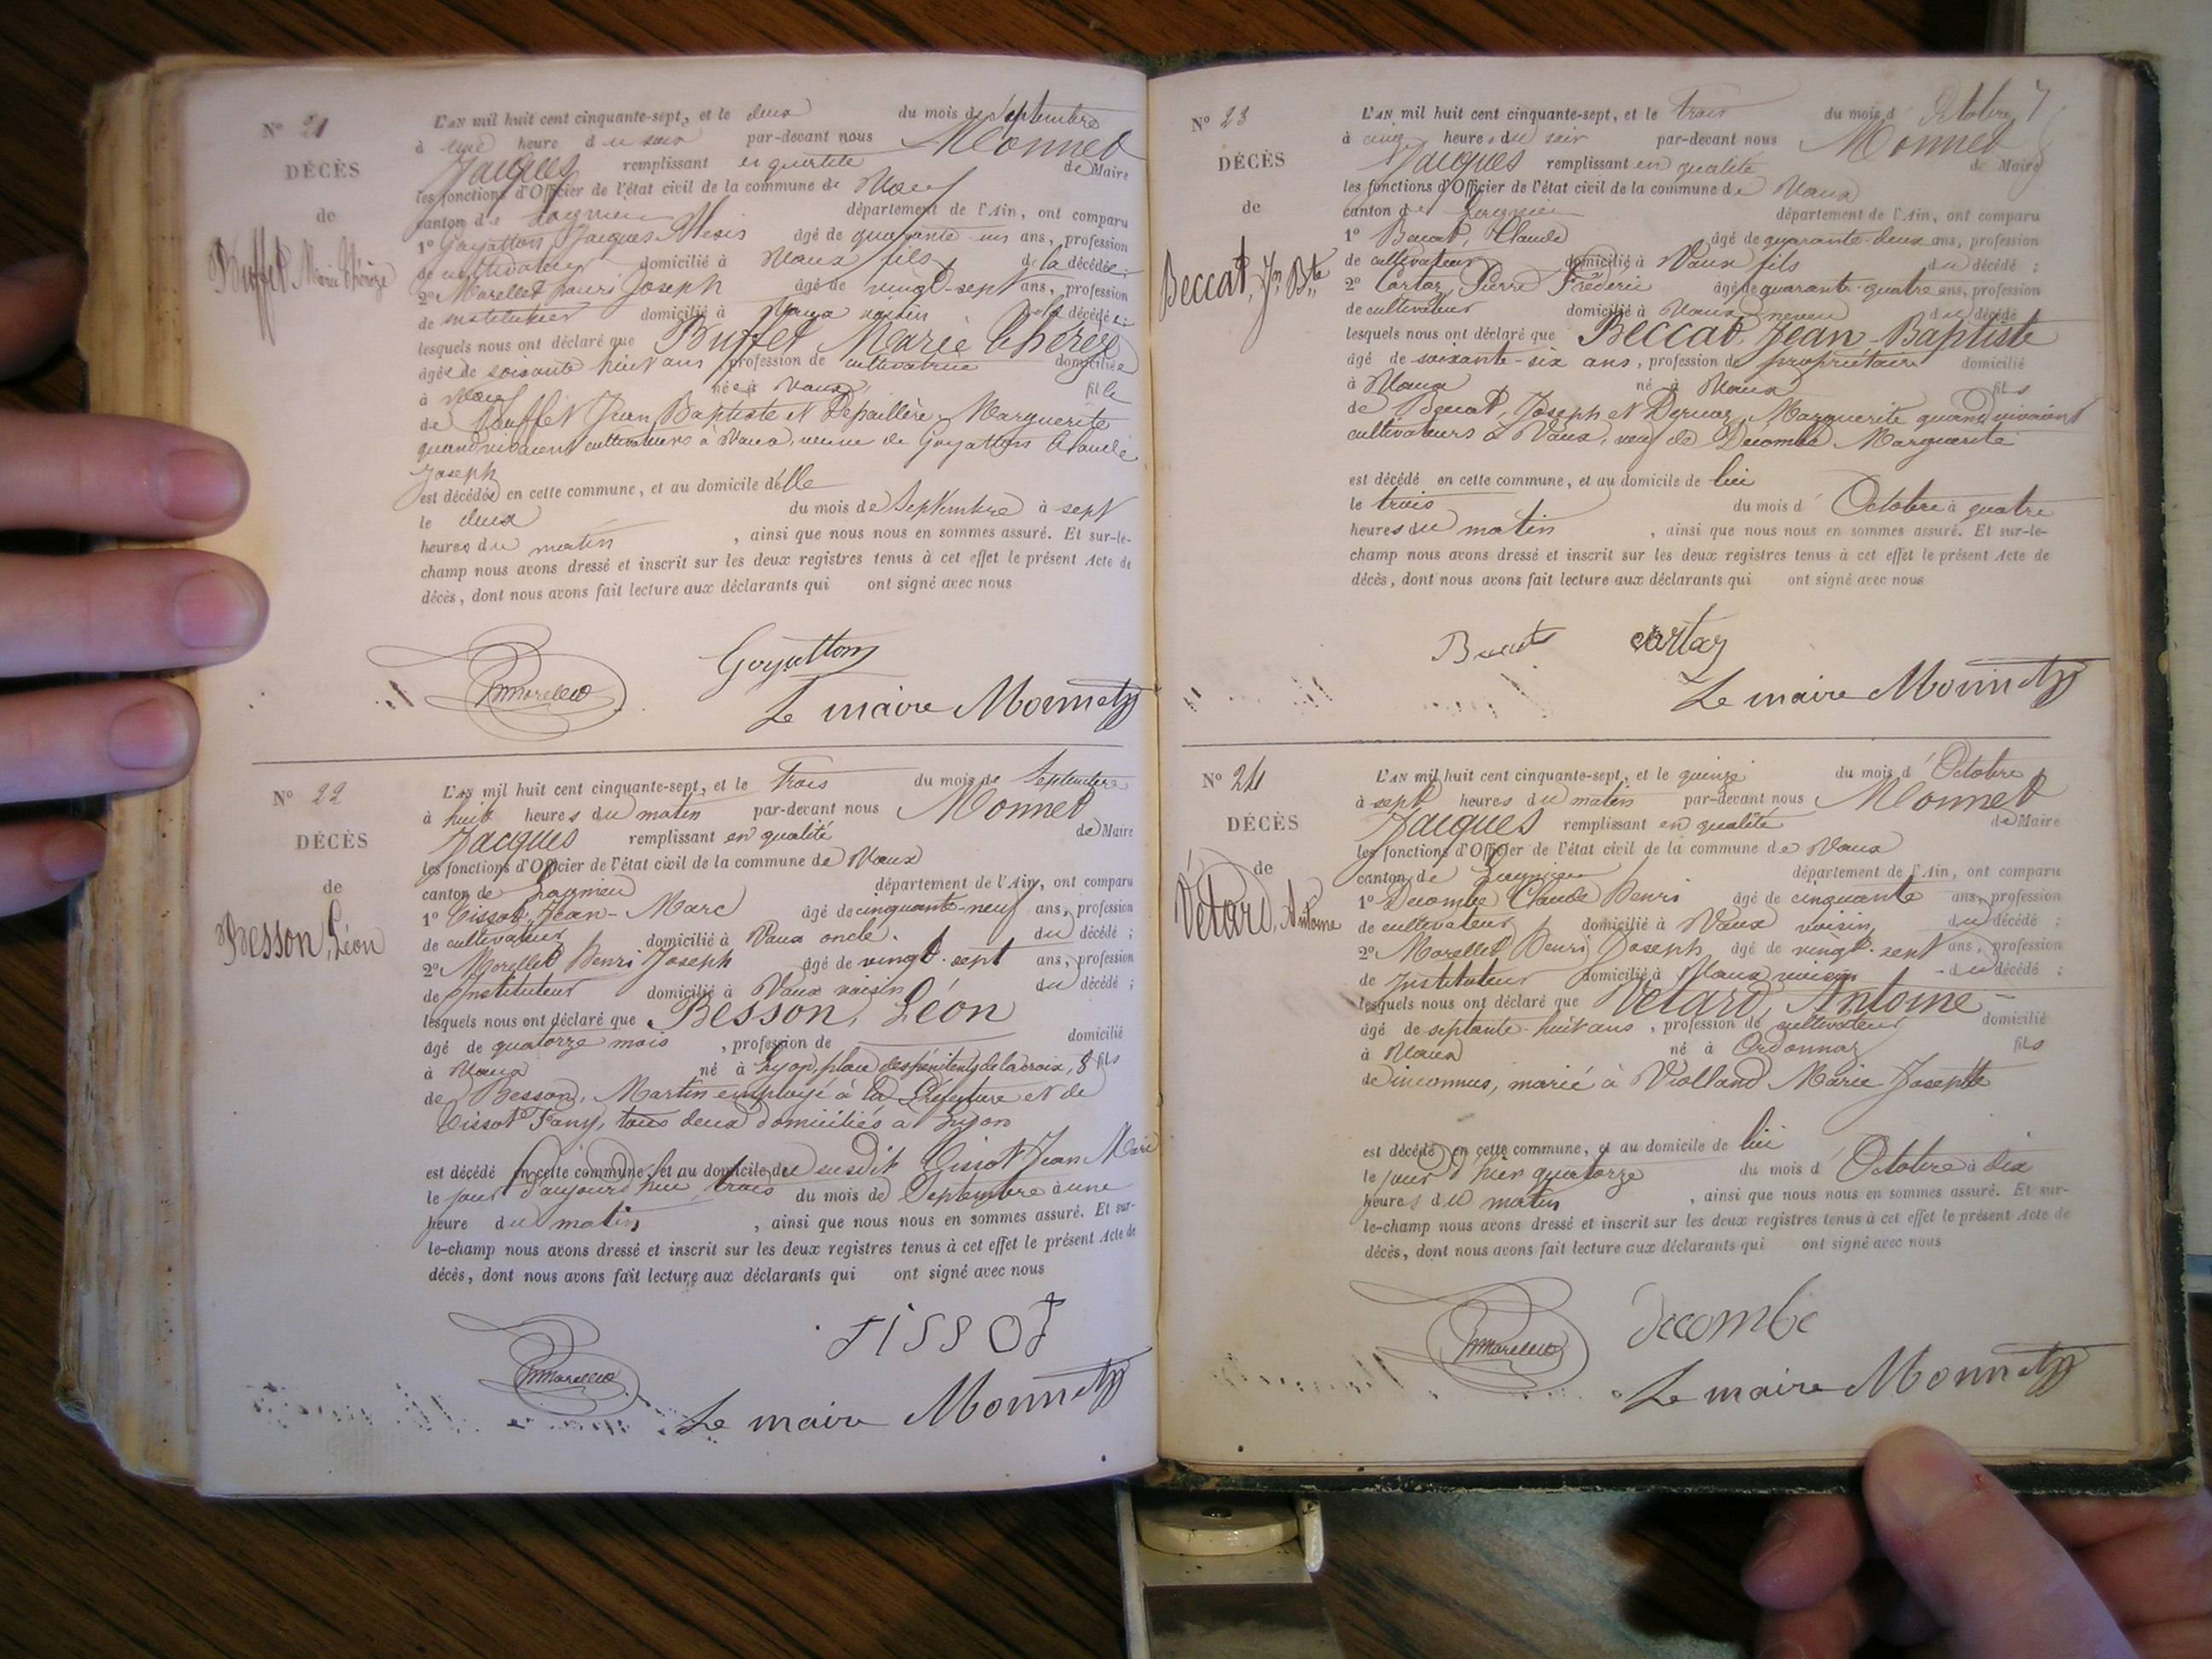 N° 21
DÉCÈS
de
Buffet Marie Thérèze
L'AN mil huit cent cinquante-sept, et le deux du mois de Septembre
à une heure du soir par-devant nous Monnet
Jacques remplissant en qualité de Maire
les fonctions d'Officier de l'état civil de la commune de Vaux
canton de Lagnieu département de l'Ain, ont comparu
1° Goyatton Jacques Alexis âgé de quarante un ans, profession
de cultivateur domicilié à Vaux fils de la décédée;
2° Morellet henri Joseph âgé de vingt-sept ans, profession
de instituteur domicilié à Vaux voisin de la décédée;
lesquels nous ont déclaré que Buffet Marie Thérèze
âgée de soixante huit ans, profession de cultivatrice domiciliée
à Vaux née à Vaux fille
de Buffet Jean Baptiste et Marguerite
quand vivaient cultivateurs à Vaux, veuve de Goyatton Claude
Joseph
est décédée en cette commune, et au domicile d'elle
le deux du mois de Septembre à sept
heures du matin, ainsi que nous nous en sommes assuré. Et sur-le-
champ nous avons dressé et inscrit sur les deux registres tenus à cet effet le présent Acte de
décès, dont nous avons fait lecture aux déclarants qui ont signé avec nous
Goyatton
Morellet
Le maire Monnet
N° 22
DÉCÈS
de
Besson, Léon
L'AN mil huit cent cinquante-sept, et le trois du mois de Septembre
à huit heures du matin par-devant nous Monnet
Jacques remplissant en qualité de Maire
les fonctions d'Officier de l'état civil de la commune de Vaux
canton de Lagnieu département de l'Ain, ont comparu
1° Tissot, Jean-Marc âgé de cinquante-neuf ans, profession
de cultivateur domicilié à Vaux oncle du décédé;
2° Morellet Henri Joseph âgé de vingt-sept ans, profession
de Instituteur domicilié à Vaux voisin du décédé;
lesquels nous ont déclaré que Besson, Léon
âgé de quatorze mois, profession de domicilié
à Vaux né à Lyon, place des pénitents de la croix, 8 fils
de Besson, Martin employé à la Préfecture et de
Tissot Fany, tous deux domiciliés à Lyon
est décédé en cette commune, et au domicile du susdit Tissot Jean Marc
le jour d'aujourd'hui trois du mois de Septembre à une
heure du matin, ainsi que nous nous en sommes assuré. Et sur-
le-champ nous avons dressé et inscrit sur les deux registres tenus à cet effet le présent Acte de
décès, dont nous avons fait lecture aux déclarants qui ont signé avec nous
TISSOT
Morellet
Le maire Monnet
7
N° 23
DÉCÈS
de
Beccat, Jn Bte
L'AN mil huit cent cinquante-sept, et le trois du mois d'Octobre
à cinq heures du soir par-devant nous Monnet
Jacques remplissant en qualité de Maire
les fonctions d'Officier de l'état civil de la commune de Vaux
canton de Lagnieu département de l'Ain, ont comparu
1° Beccat, Claude âgé de quarante-deux ans, profession
de cultivateur domicilié à Vaux fils du décédé;
2° Cartaz, Pierre Fréderic âgé de quarante-quatre ans, profession
de cultivateur domicilié à Vaux neveu du décédé
lesquels nous ont déclaré que Beccat, Jean-Baptiste
âgé de soixante-six ans, profession de propriétaire domicilié
à Vaux né à Vaux fils
de Beccat, Joseph et Marguerite quand vivaient
cultivateurs à Vaux, veuf de Decombe Marguerite
est décédé en cette commune, et au domicile de lui
le trois du mois d'Octobre à quatre
heures du matin, ainsi que nous nous en sommes assuré. Et sur-le-
champ nous avons dressé et inscrit sur les deux registres tenus à cet effet le présent Acte de
décès, dont nous avons fait lecture aux déclarants qui ont signé avec nous
cartaz
Le maire Monnet
N° 24
DÉCÈS
de
Vétard, Antoine
L'AN mil huit cent cinquante-sept, et le quinze du mois d'Octobre
à sept heures du matin par-devant nous Monnet
Jacques remplissant en qualité de Maire
les fonctions d'Officier de l'état civil de la commune de Vaux
canton de Lagnieu département de l'Ain, ont comparu
1° Decombe Claude Henri âgé de cinquante ans, profession
de cultivateur domicilié à Vaux voisin du décédé;
2° Morellet Henri Joseph âgé de vingt-sept ans, profession
de Instituteur domicilié à Vaux voisin du décédé;
lesquels nous ont déclaré que Vétard, Antoine
âgé de septante-huit ans, profession de cultivateur domicilié
à Vaux né à Ordonnaz fils
de inconnus, marié à Violland Marie Josephte
est décédé en cette commune, et au domicile de lui
le jour d'hier quatorze du mois d'Octobre à dix
heures du matin, ainsi que nous nous en sommes assuré. Et sur-
le-champ nous avons dressé et inscrit sur les deux registres tenus à cet effet le présent Acte de
décès, dont nous avons fait lecture aux déclarants qui ont signé avec nous
Decombe
Morellet
Le maire Monnet